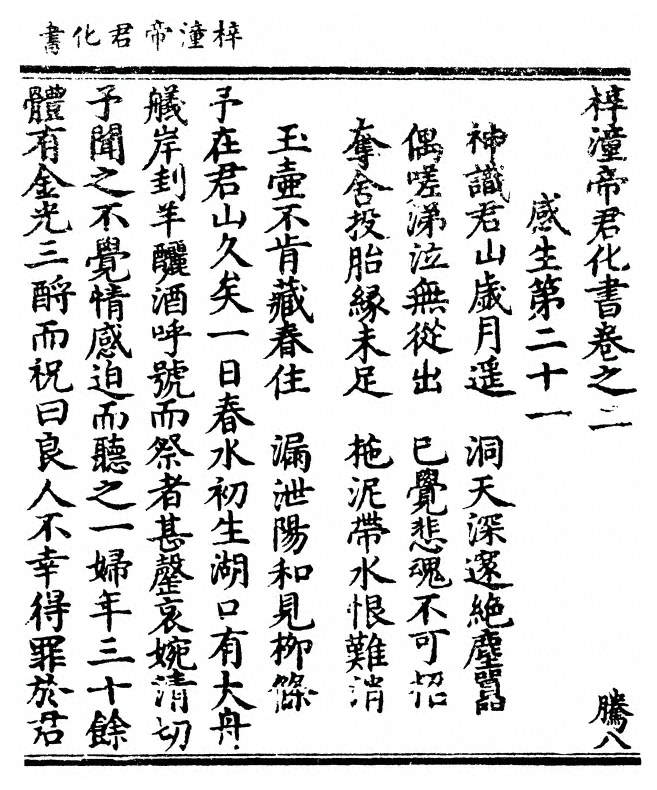 梓潼帝君化書
梓潼帝君化書卷之二 騰八
感生第二十一
神識君山歲月遥 洞天深邃絶塵嚻
偶嗟涕泣無從出 已覺悲魂不可招
奪舍投胎緣未足 拖泥帶水恨難消
玉壷不肯藏春住 漏泄陽和見柳條
予在君山久矣一日春水初生湖口有大舟
艤岸刲羊釃酒呼號而祭者甚聲哀婉清切
予聞之不覺情感迫而聽之一婦年三十餘
體有金光三酹而祝曰良人不幸得罪於君